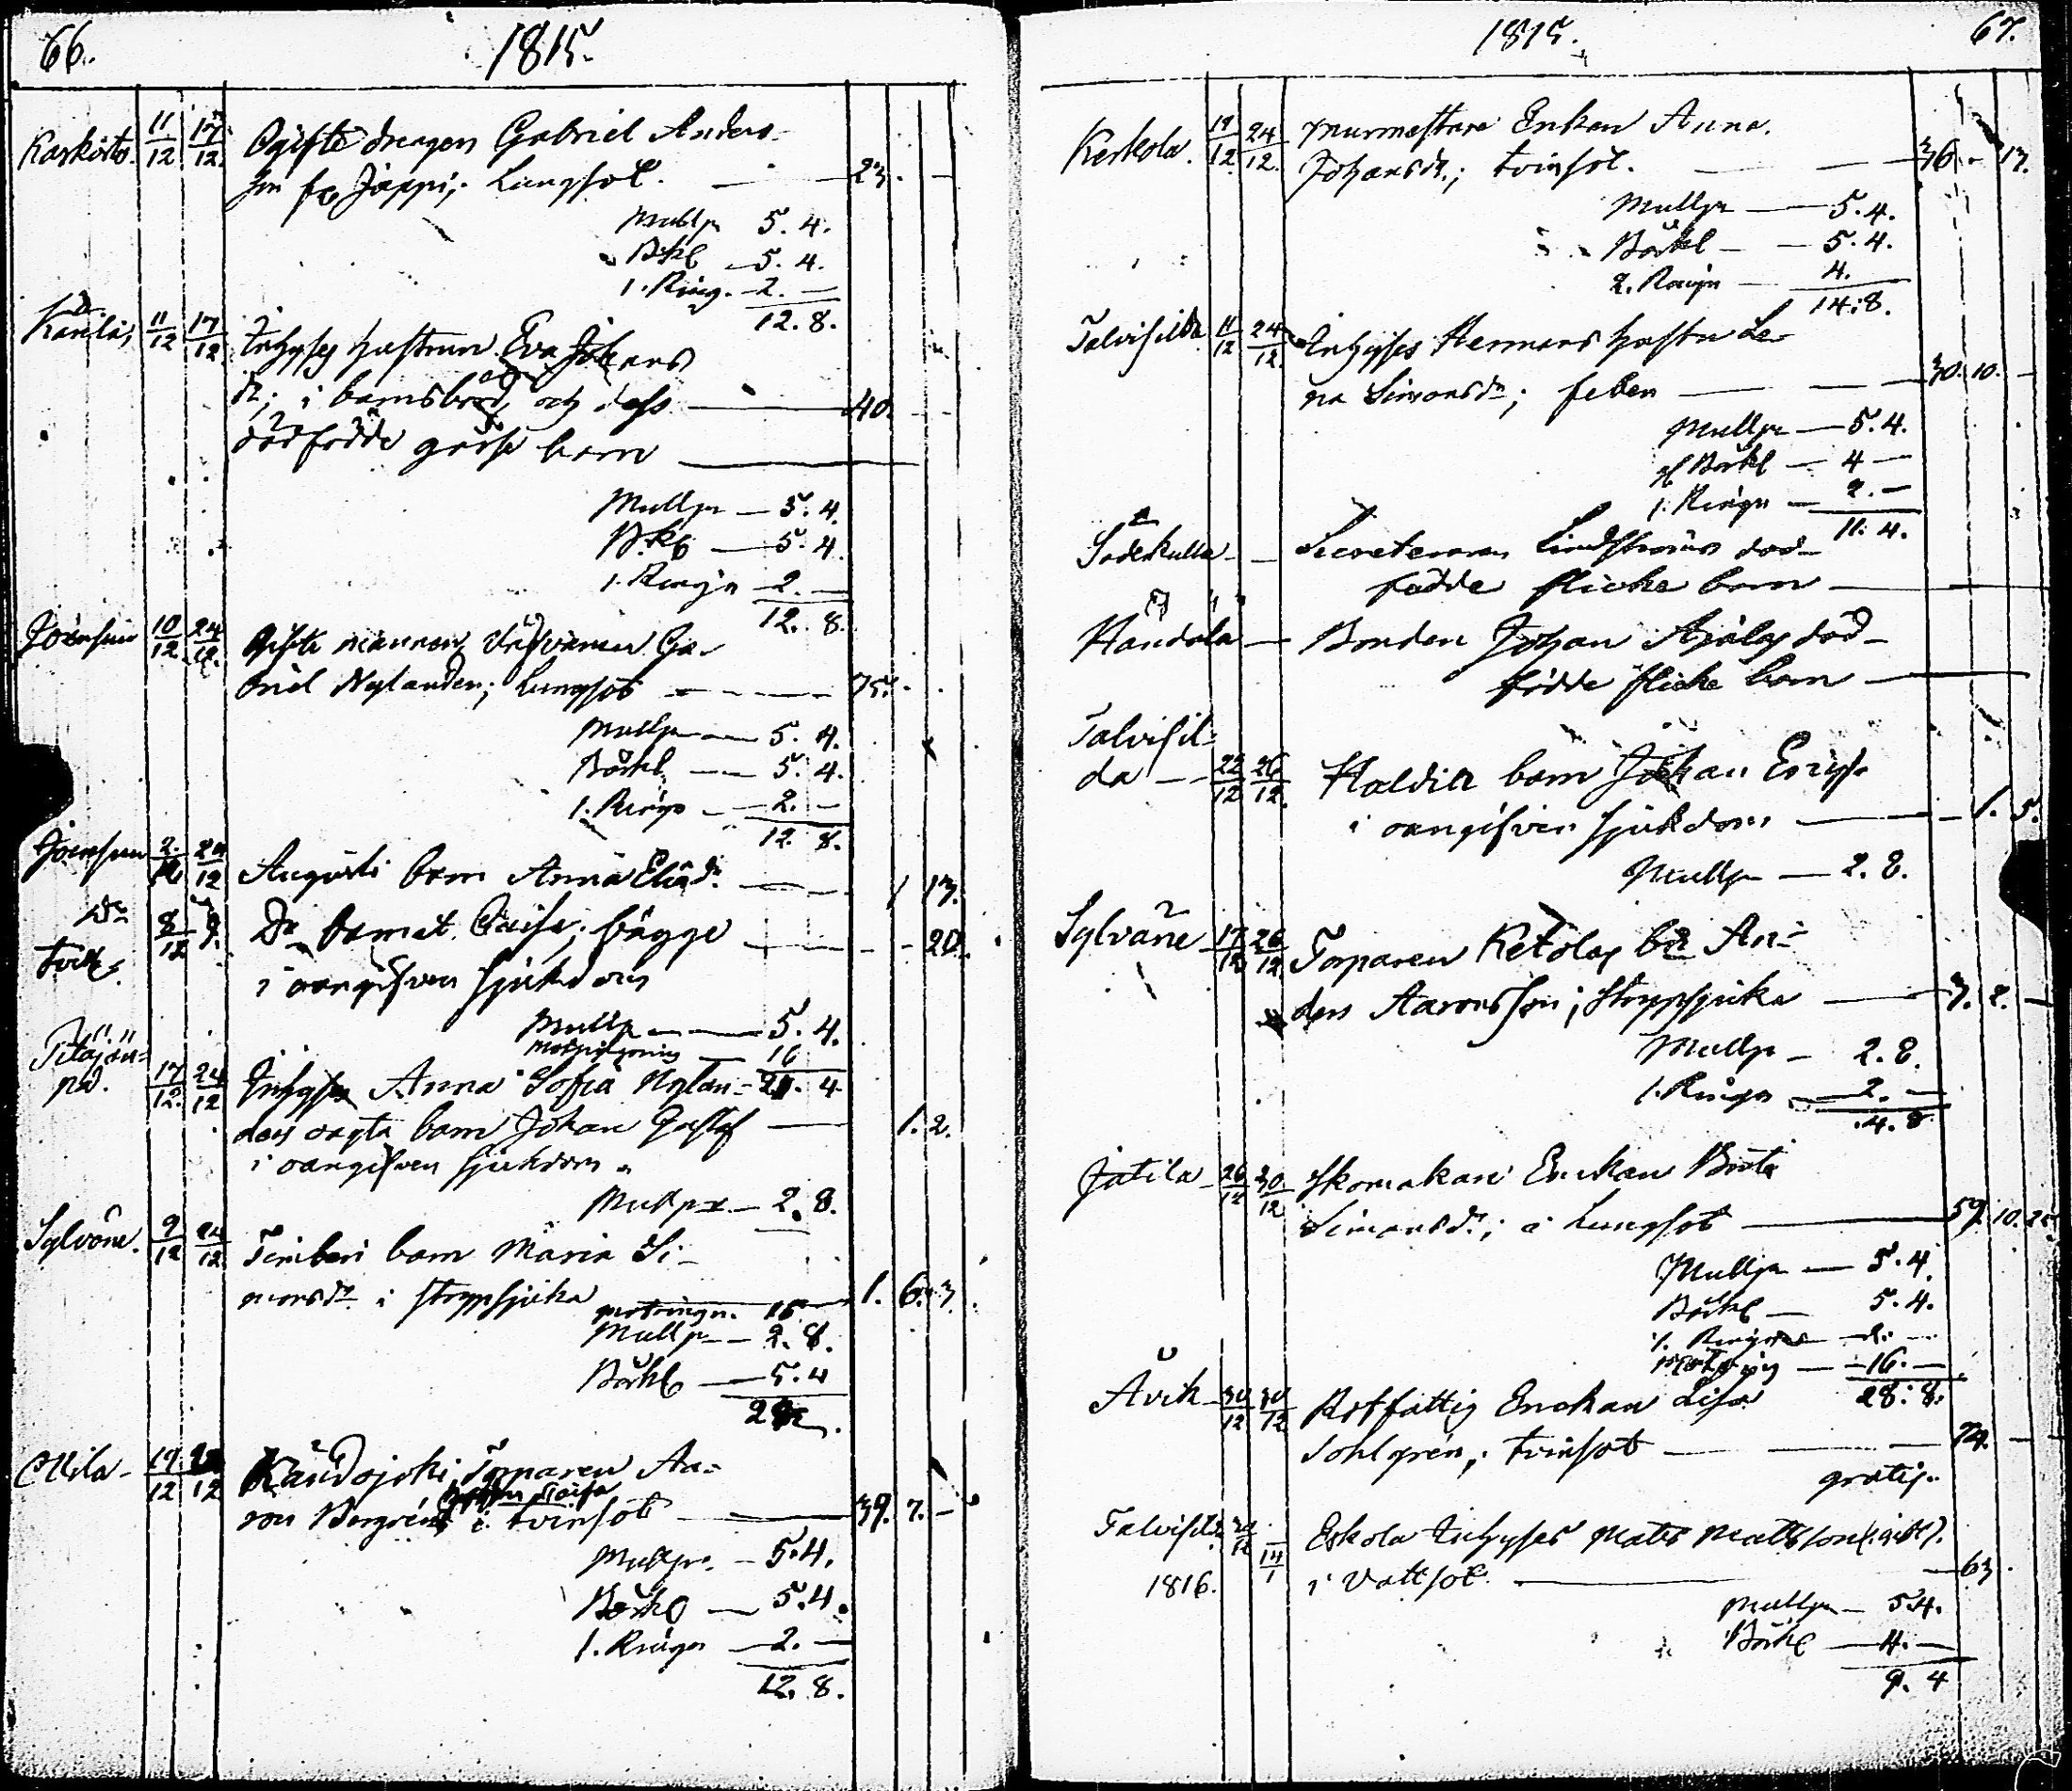 66.
1815.
Karkisto. 11/12 17/12 Ogifte dragon Gabriel Anders-
son fr. Jäppi; Lungsot. — 23. —
Mullp 5. 4.
Bkl 5. 4.
1. Ring. 2. —
12. 8.
11/12 17/12 Inhyses hustrun Eva Johans
dr; i barnsbörd, och dess — 40.
dödfödde gosse barn —
Mullpr — 5. 4.
B.kl — 5. 4.
1. Ringn 2. —
12. 8.
Joensuu 10/12 24/12 Gifte mannen Ga-
briel Nylander; Lungsot — 75.
Mullpr — 5. 4.
Bårkl. — 5. 4.
1. Ringn — 2. —
12. 8.
Joensuu 2/12 24/12 Augusti barn Anna Eliæd. — 1 13.
Do 8/12 Do barnet Caisa; bägge — 20.
i oangifven sjukdom
Mullp — 5. 4.
16
21. 4.
17/12 24/12 Inhyses Anna Sofia Nylan-
ders oägta barn Johan Gustaf — 1. 2.
i oangifven sjukdom.
Mullpr — 2. 8.
Sylvöne. 9/12 24/12 Timberi barn Maria Si-
monsdr i stryppsjuka 1. 6. 3.
motringn. 16.
Mullp — 2. 8.
Bårkl — 5. 4
Ollila — 19/12 Kaudojoki Torparen Aa-
ron Bergréns i tvinsot — 39. 7. —
Mullpr. — 5. 4.
Bårkl — 5. 4.
1. Ringn — 2. —
12. 8.
1815.
67.
Keskola. 19/12 24/12. Murmästare Enkan Anna
Johansdr.; tvinsot. — 36. — 17.
Mullpr — 5. 4.
Bårkl — 5. 4.
2. Ringn — 4.
14. 8.
Talvisilda 11/12 24/12 Inhyses Hermans hustru Le-
na Simonsdr; feber — 30. 10. —
Mullpr — 5. 4.
Bårkl — 4 —
1. Ringn — 2. —
11. 4.
Söderkulla — Secreteraren Lindströms död-
födde flicke barn —
Händölä — Bonden Johan Äjälas död-
födde flicke barn —
Talvisil-
da — 22/12 26/12. Haldin barn Johan Ericss.
i oangifven sjukdom — 1. 5.
Mullpr — 2. 8.
Sylväne 17/12 26/12 Torparen Ketolas bn An-
ders Aaronsson; Stryppsjuka — 3. 2. —
Mullp — 2. 8.
1. Ringn — 2. —
4. 8.
Jatila — 26/12 30/12 Skomakare Enckan Brita
Simonsdr.; i Lungsot — 59. 10. 25
Mullpr — 5. 4.
Bårkl — 5. 4.
1. Ringn — 2. —
— 16. —
28. 8.
Åvik 30/12 30/12 Rotfattig Enckan Lisa
Sohlgrén; tvinsot — 74. —
gratis.
Talvisilda 14/1 Eskola Inhyses Mats Mattsson
1816. i Vattsot. — 63.
Mullpr — 5. 4.
Bårkl — 4. —
9. 4